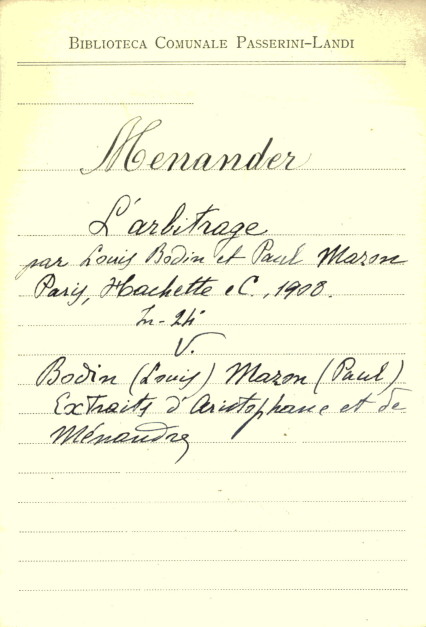 BIBLIOTECA COMUNALE PASSERINI-LANDI
Menander
L'arbitrage
par Louis Bodin et Paul Mazon
Paris, Hachette e C., 1908.
In-24
V.
Bodin (Louis) Mazon (Paul)
Extraits d'Aristophane et de
Ménandre